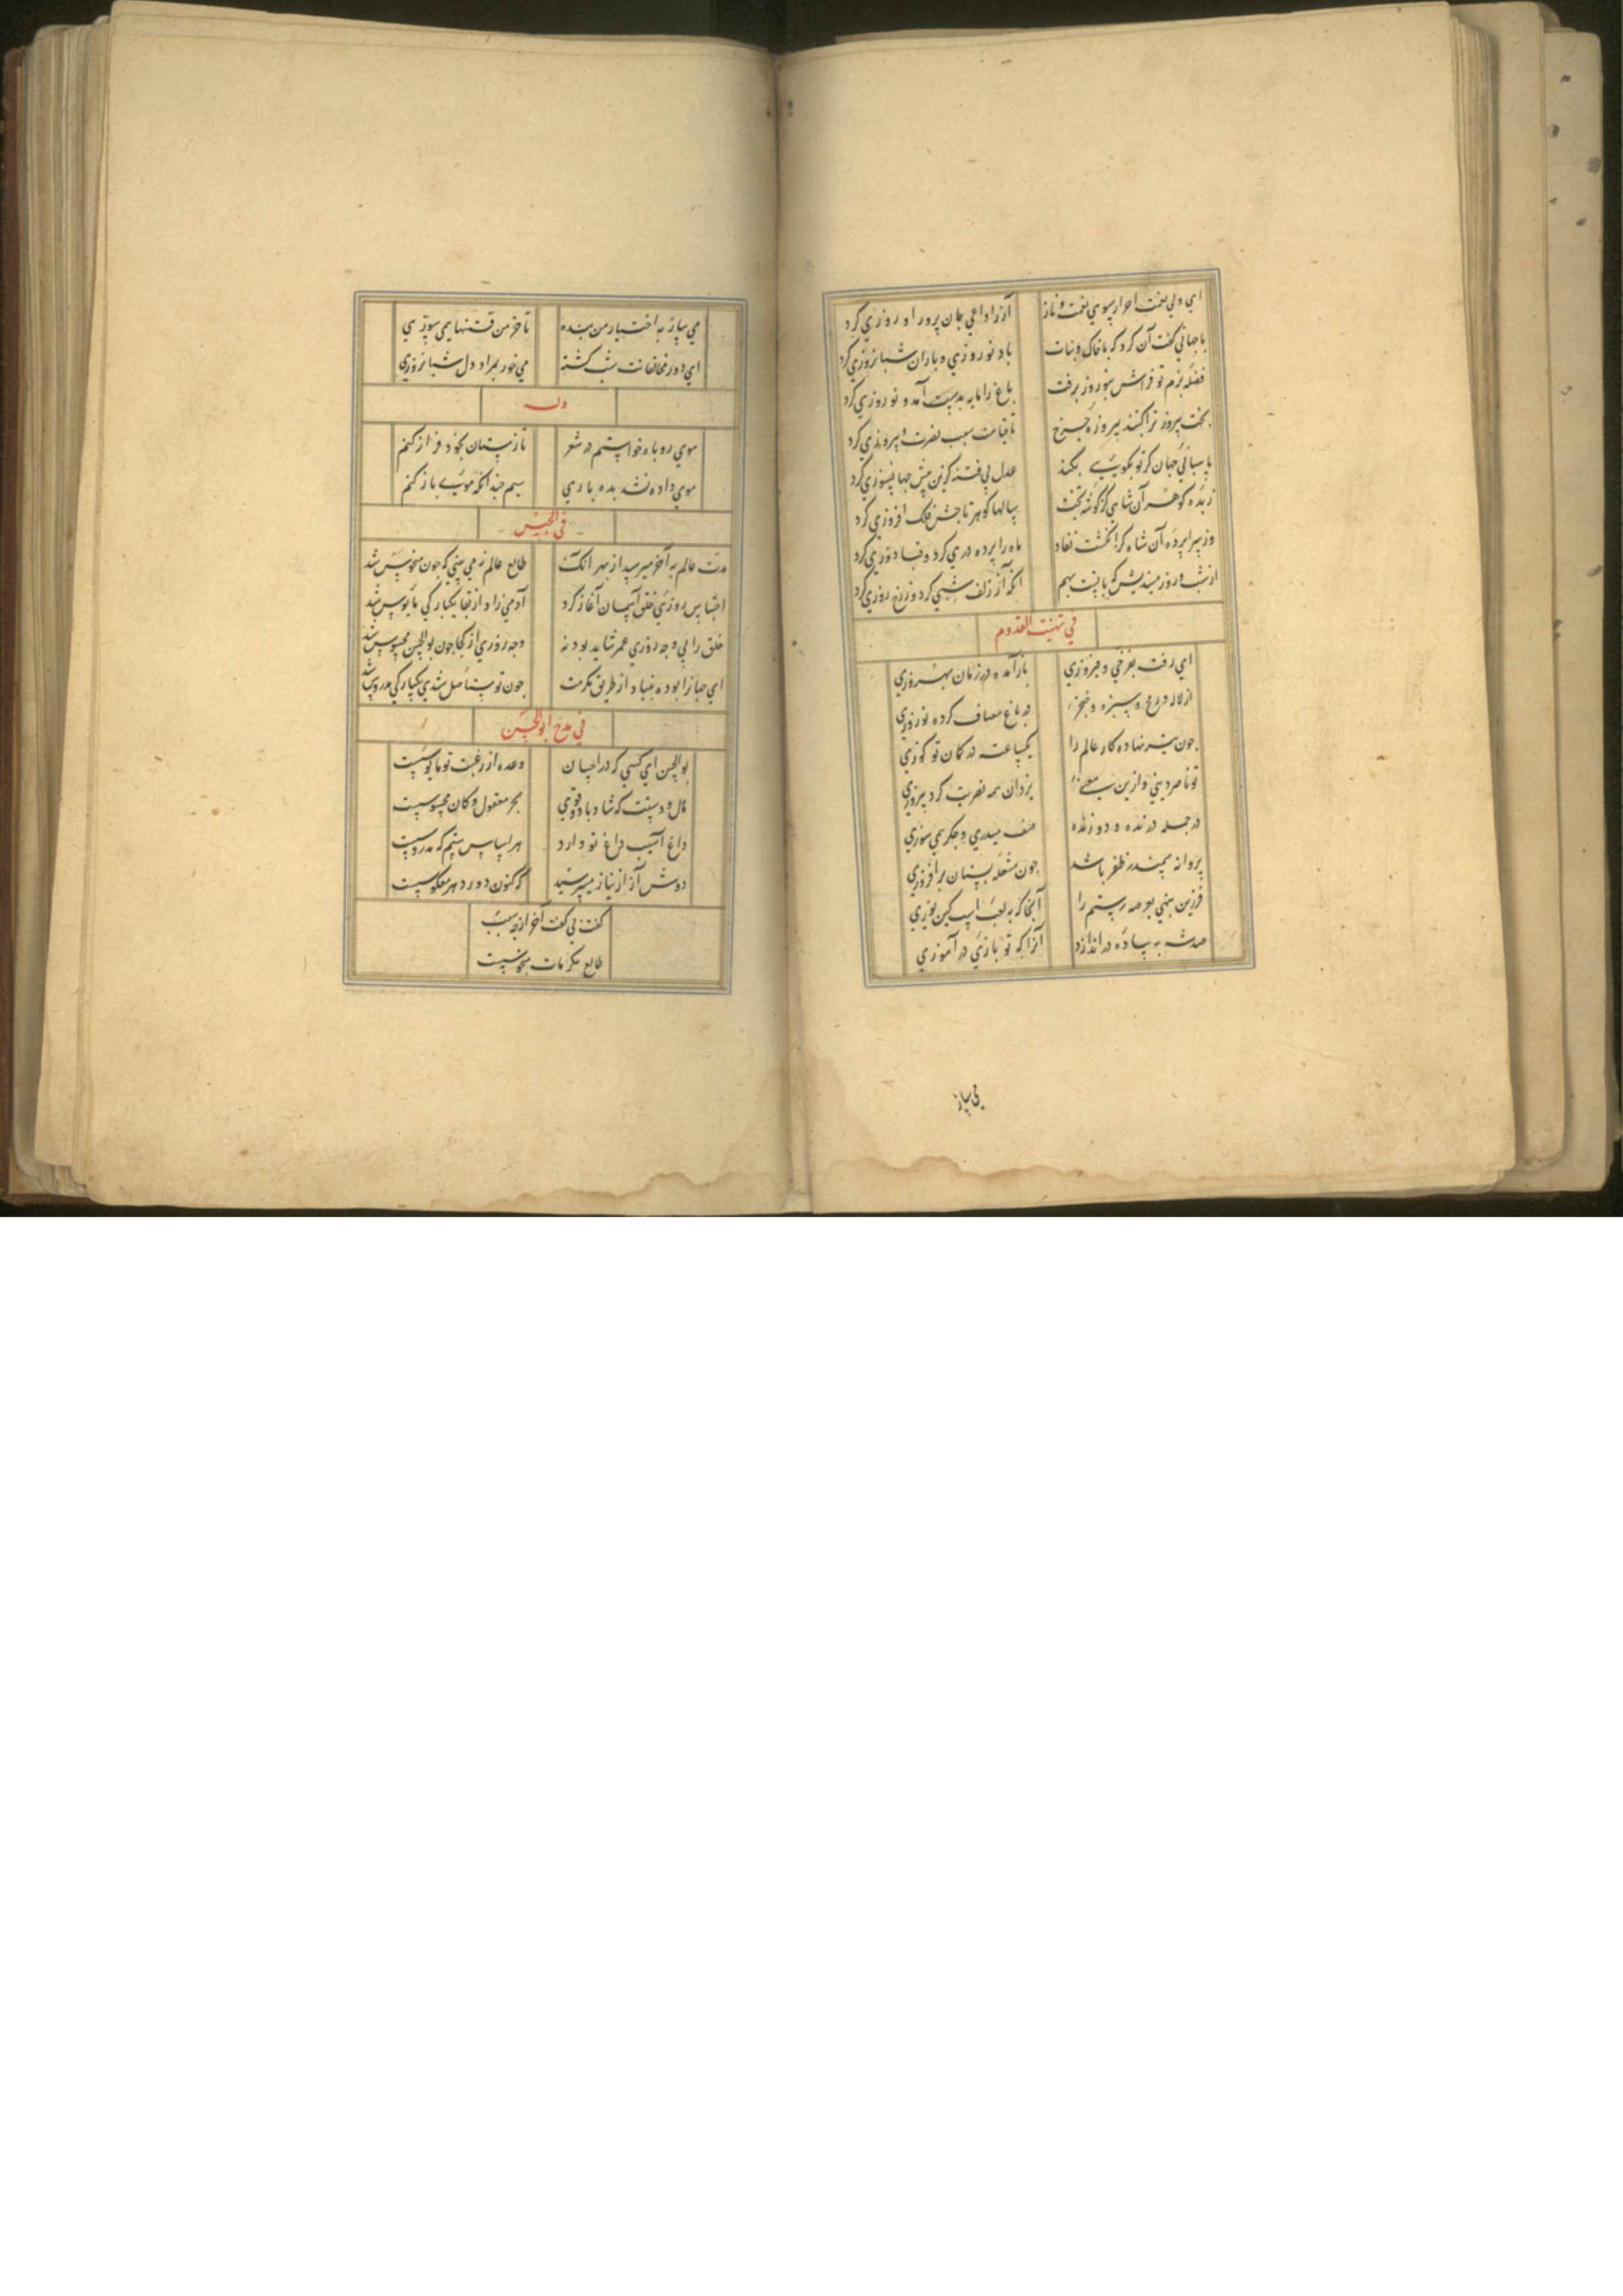 ای ولی نعمت احرار سوی نعمت و ناز
آز را داعی جان پرور او روزی کرد
با جهانی کفت آن کرد که با خاک و نبات
باد نوروزی و باران شبانروزی کرد
فضله بزم تو فراش بنوروز برفت
باغ را مایه بدست آمد و نوروزی کرد
بخت پیروز ترا کنبد پیروزه چرخ
تا قیامت سبب نصرت و پیروزی کرد
پاسبانی جهان کر تو بکویی بکند
عدل بی فتنه کزین پیش جهانسوزی کرد
زبده کوهر آن شاهی کز کوشه تخت
سالها کوهر تاجش فلک افروزی کرد
وز سراپرده آن شاه کز انکشت نفاد
ماه را پرده دری کرد و قبا دوزی کرد
از شب و روز میندیش که با تست بهم
انکه از زلف شبی کرد و ز رخ روزی کرد
فی تهنیت القدوم
ای رفت بفرخی و فیروزی
باز آمده در زمان بهروزی
از لاله رمح و سبزه خنجر
در باغ مصاف کرده نوروزی
چون تیر نهاده کار عالم را
یکساعت در کمان تو کوزی
تو ناصر دینی و ازین معنی
یزدان همه نصرت کرد پیروزی
در حمله درنده و دوزنده
صف میدری و جکر همی سوزی
پروانه سمندر ظفر باشد
چون مشعله سنان برافروزی
فرزین بنهی بعرصه رستم را
آنجا که به لعب اسب کین توزی
صد شه به پیاده در اندازد
آنرا که تو بازی در آموزی
می ساز
می ساز به اختیار من بنده
تا خرمن فتنها همی سوزی
ای دور مخالفانت شب کشته
می خور بمراد دل شبانروزی
وله
موی روباه خواستم در شعر
تا زمستان بخود فراز کنم
موی داده نشد بده باری
سیم چندانکه موی باز کنم
فی الحبس
مدت عالم به آخر میرسد از بهر انک
طالع عالم نمی بینی که چون منحوس شد
احتباس روزی خلق آسمان آغاز کرد
آدمی زاد از بقا یکبارکی مایوس شد
خلق را بی وجه روزی عمر شاید بود نه
وجه روزی از کجا چون بوالحسن محبوس شد
ای حیا را بوده بنیاد از طریق مکرمت
چون تو مستاصل شدی یکبارکی مدروس شد
فی مدح ابوالحسن
بوالحسن ای کسی که در احسان
وعده از رغبت تو مایوسست
مال و دستت که شاد باد و قوی
بحر مغفول و کان محبوسست
داغ آسیب داغ تو دارد
هر لباس ستم که مدروسست
دوش آز از نیاز میپرسید
که کنون دور دهر معکوسست
کفت نی کفت آخر از چه سبب
طالع مکرمات منحوسست